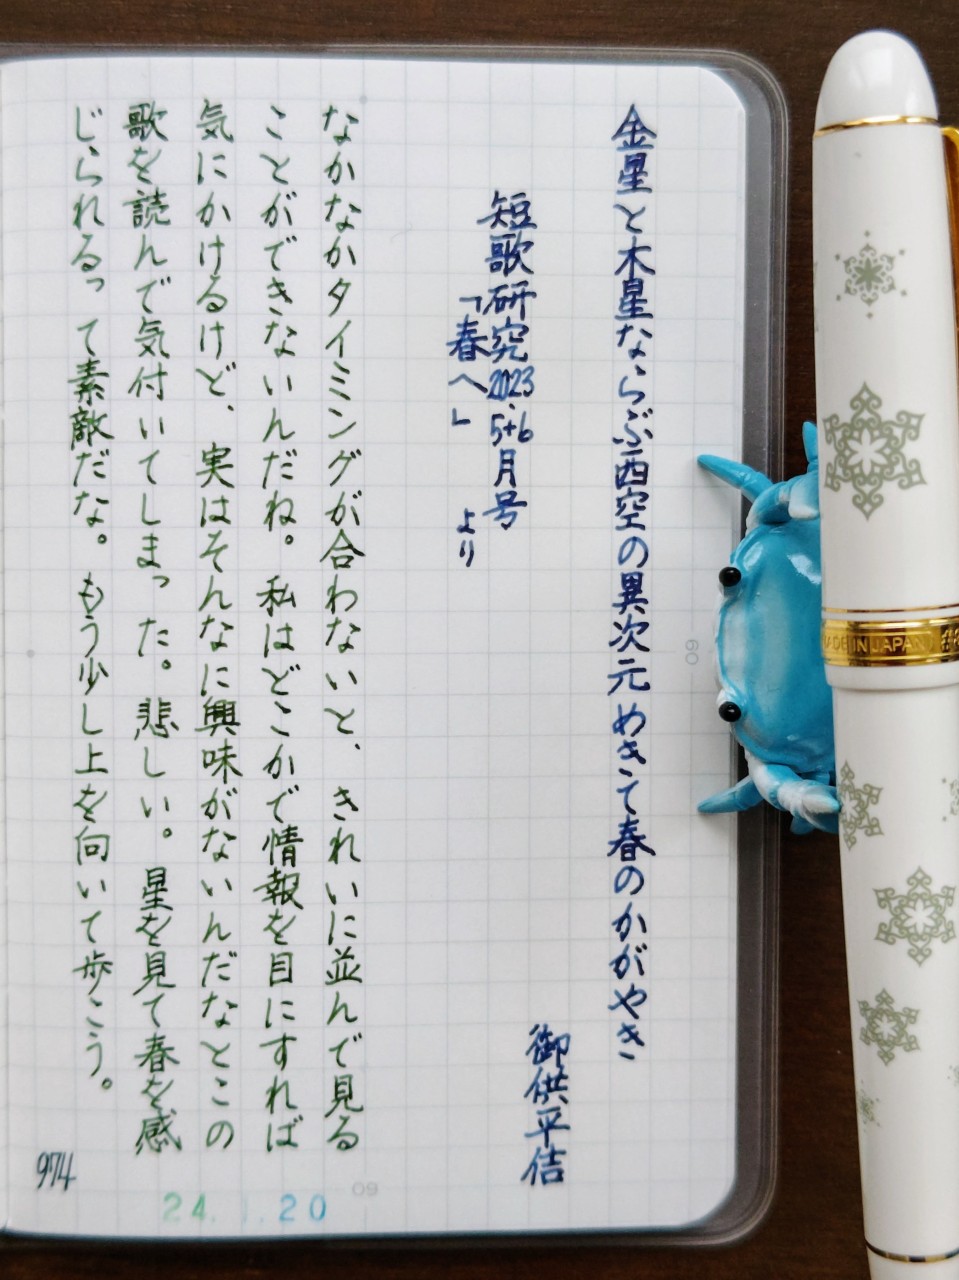 金星と木星ならぶ西空の異次元めきて春のかがやき
御供平佶
短歌研究2023.5+6月号
「春へ」より
なかなかタイミングが合わないと、きれいに並んで見る
ことができないんだね。私はどこかで情報を目にすれば
気にかけるけど、実はそんなに興味がないんだなとこの
歌を読んで気付いてしまった。悲しい。星を見て春を感
じられるって素敵だな。もう少し上を向いて歩こう。
974
24.1.20
09
09
MADE IN JAPAN